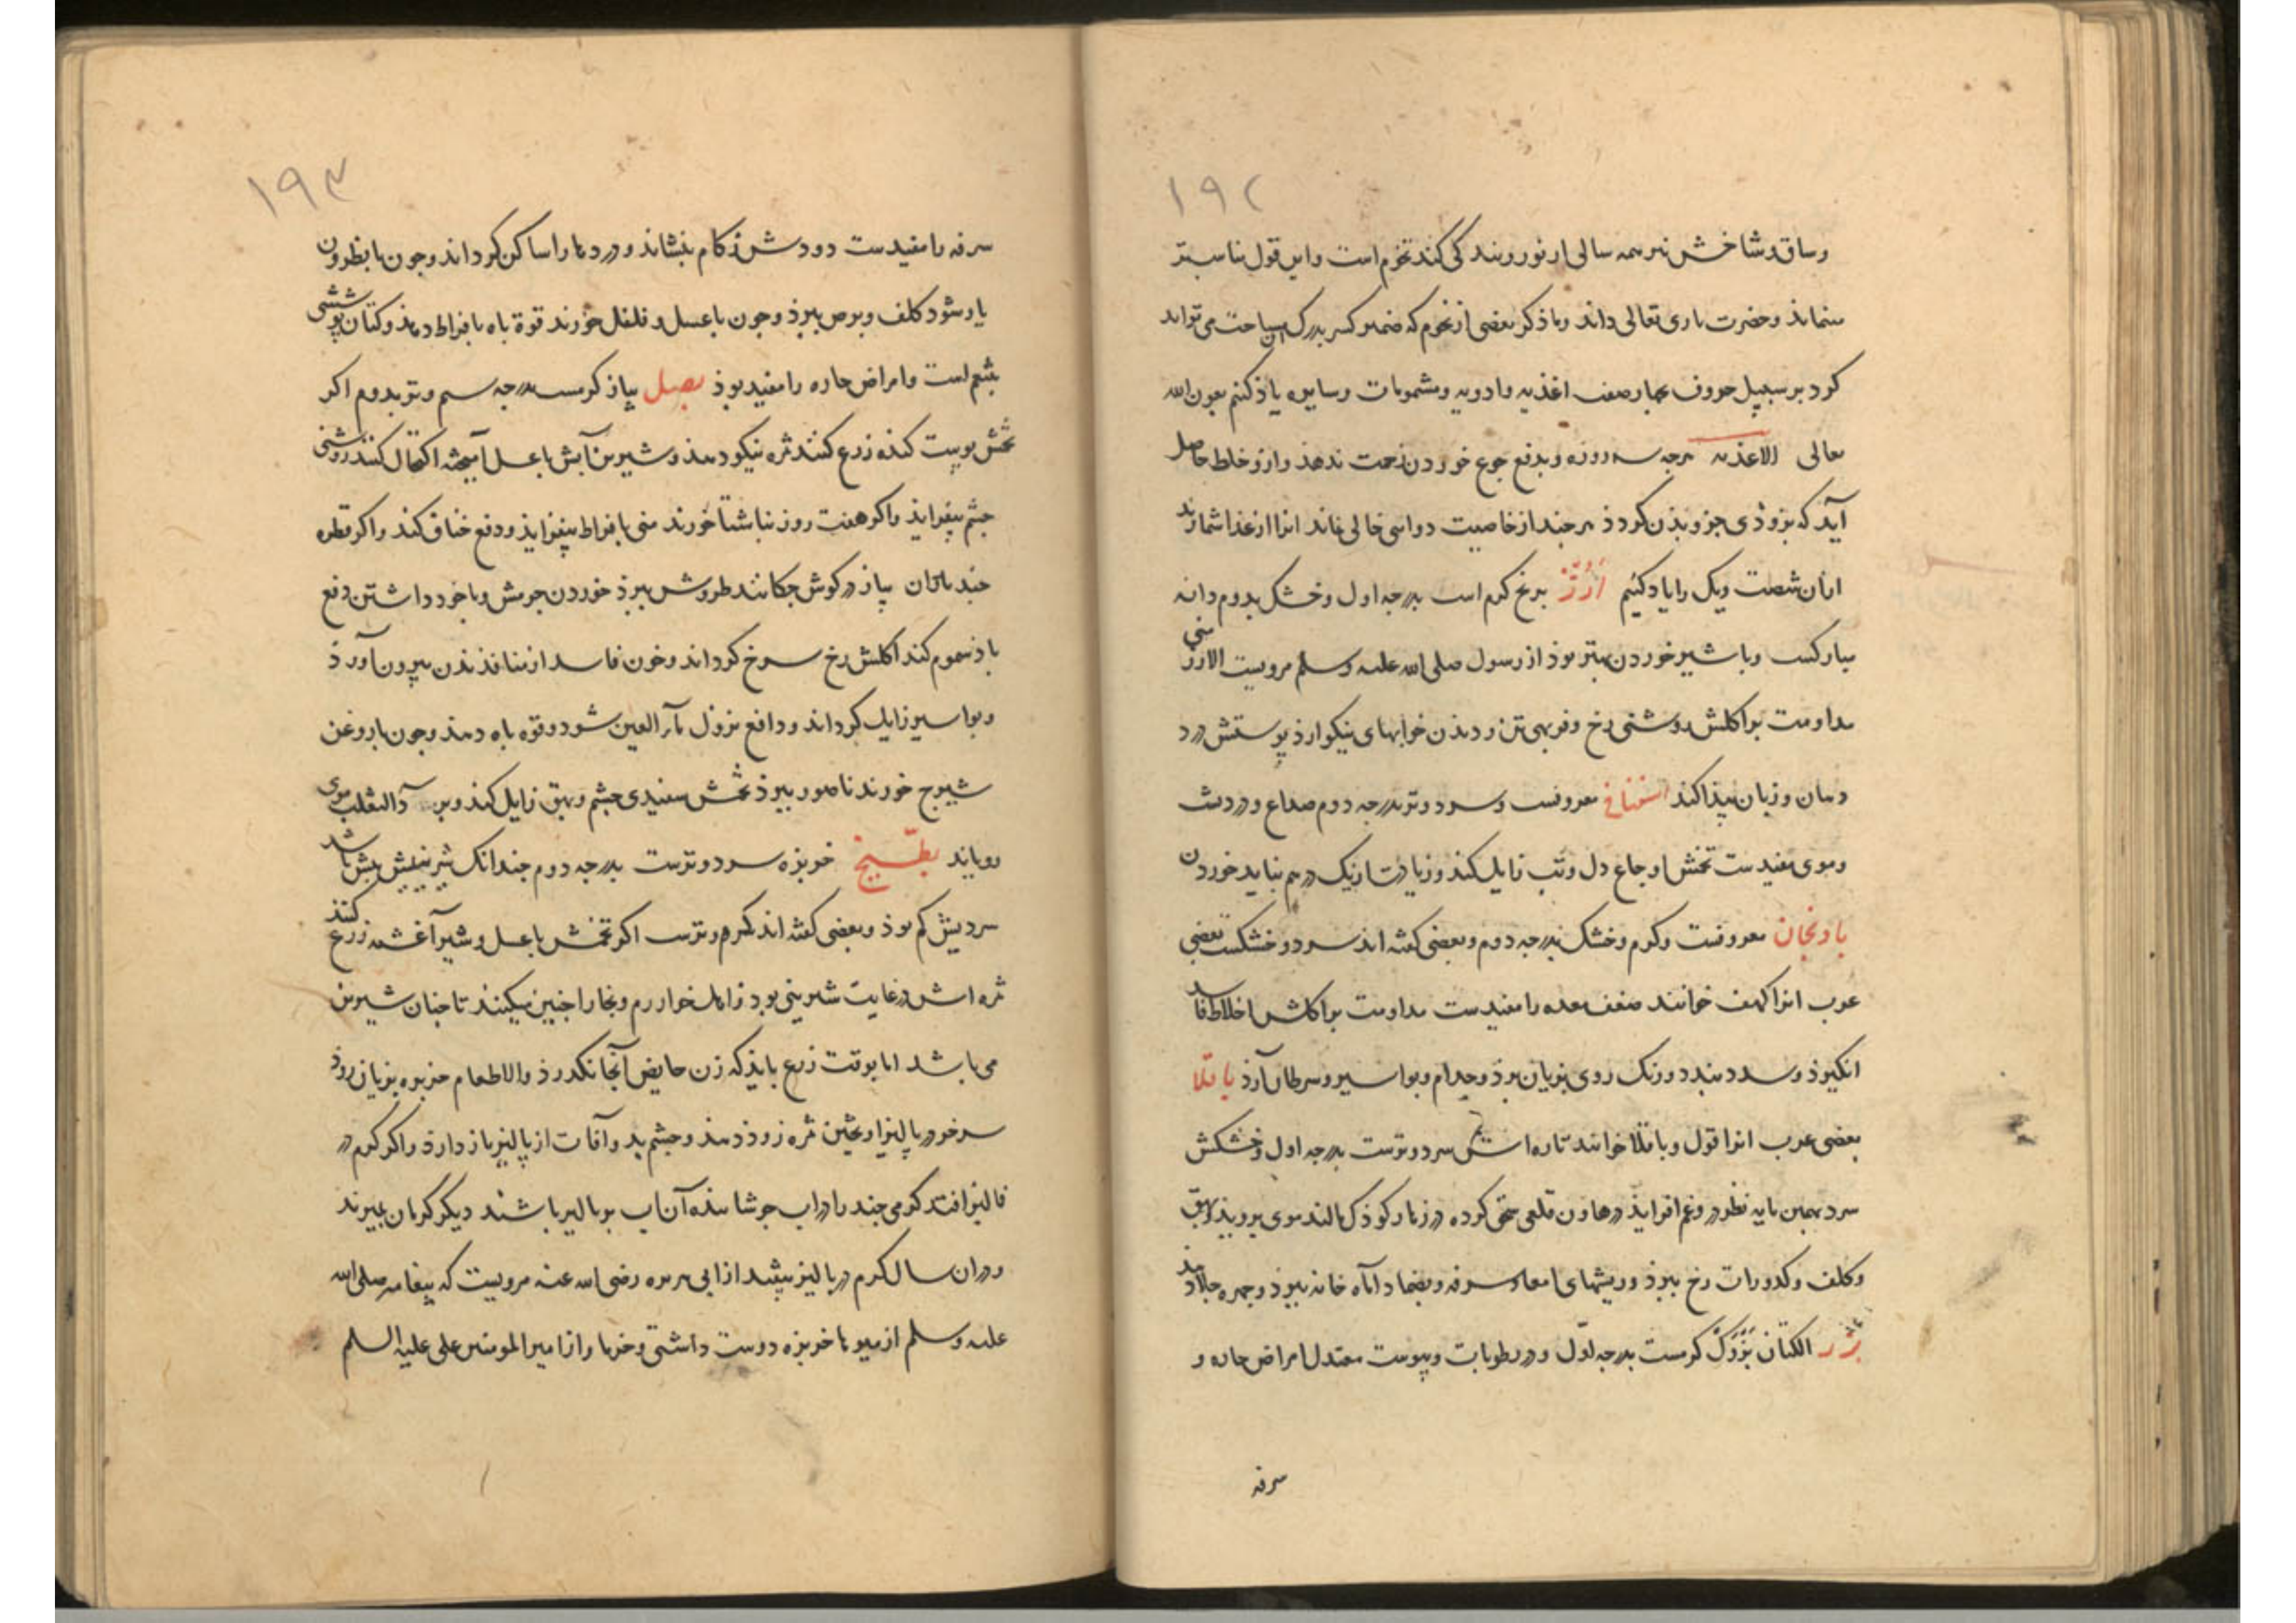 ۱۹۲
وساق و شاخش نیز همه سالی از نو رویند کی کند نجم است و این قول مناسبتر
مینماید و حضرت باری تعالی داند و ما ذکر بعضی از نجوم که ضمیر کسر بدرک آن سباحت می تواند
کرد بر سبیل حروف بچهار صنف اغذیه و ادویه و مشمومات و سایره یاد کنیم بعون الله
تعالی الاغذیه هرچه سد روزه و بدفع جوع خوردن زحمت ندهد و ازو خلط حاصل
آید که بزودی جزو بدن کردد هر چند از خاصیت دوایی خالی نماند انرا از غذا شمارند
ازان شصت ویک را یاد کنیم اَرُزّ برنج کرم است بدرجه اول و خشک بدوم دانه
مبارکست و با شیر خوردن بهتر بود از رسول صلی الله علیه وسلم مرویست الارز منی
مداومت بر اکلش روشنی رخ و فربهی تن و دیدن خوابهای نیکو ارد پوستش درد
دهان و زبان پیدا کند اسفناخ معروفست و سرد و تر بدرجه دوم صداع و درد پشت
و موی مفیدست تخمش اوجاع دل و تب زایل کند و زیادت از یک درهم نباید خوردن
بادنجان معروفست و کرم و خشک بدرجه دوم و بعضی کفته اند سرد و خشکست بعضی
عرب انرا کهف خوانند ضعف معده را مفیدست مداومت بر اکلش اخلاط فاسد
انکیزد و سدد بندد و رنک روی بزیان برد و جذام و بواسیر و سرطان آرد باقلا
بعضی عرب انرا فول و باقلا خوانند تازه اش سرد و ترست بدرجه اول و خشکش
سرد بهمین پایه نظر در و غم افزاید در هاون قلعی سحق کرده در زهار کودک مالند موی بروید بهق
و کلف و کدورات رخ ببرد و ریشهای امعا و سرفه و بضماد آماه خانه ببرد و جمره جلا دهد
بزر الکتان بَزْرَک کرمست بدرجه اول و در رطوبات و یبوست معتدل امراض حاره و
سرفه
۱۹۳
سرفه را مفیدست دودش زکام بنشاند و دردها را ساکن کرداند و چون با نطرون
یار شود کلف و برص ببرد و چون با عسل و فلفل خورند قوة باه بافراط دهد و کتان پوششی
بشم است و امراض حاره را مفید بود بصل پیاز کرمست بدرجه سیم و تر بدوم اکر
تخمش پوست کنده زرع کنند ثمره نیکو دهد و شیرین آبش با عسل آمیخته اکتحال کنند روشنی
چشم بیفزاید و اکر هفت روز ناشتا خورند منی بافراط بیفزاید و دفع خناق کند و اکر قطره
چند بآن پیاز در کوش چکانند طروش ببرد خوردن جرمش و با خود داشتن دفع
باد سموم کند اکلش رخ سرخ کرداند و خون فاسد از منافذ بدن بیرون آورد
و بواسیر زایل کرداند و دافع نزول مآء العین شود و قوه باه دهد و چون با روغن
شیرج خورند ناصور ببرد تخمش سفیدی چشم و بهق زایل کند و بر دآء الثعلب موی
رویاند بطّیخ خربزه سرد و ترست بدرجه دوم چندانک شیرینیش بیش باشد
سردیش کم بود و بعضی کفته اند کرم و ترست اکر تخمش با عسل و شیر آغشته زرع کنند
ثمره اش در غایت شیرینی بود و اهل خوارزم و بخارا چنین میکنند تا چنان شیرین
می باشد اما بوقت زرع باید که زن حایض آنجا نکدرد والا طعام خربزه بزیان رود
سر خر در پالیز اویختن ثمره زود دهد و چشم بد و آفات از پالیز باز دارد و اکر کرم در
فالیز افتد کرمی چند را در اب جوشانیده آن آب بر پالیز پاشند دیکر کرمان بمیرند
و دران سال کرم در پالیز نیفتد از ابی هریره رضی الله عنه مرویست که پیغامبر صلی الله
علیه وسلم از میوها خربزه دوست داشتی و خرما و از امیر المومنین علی علیه السلم